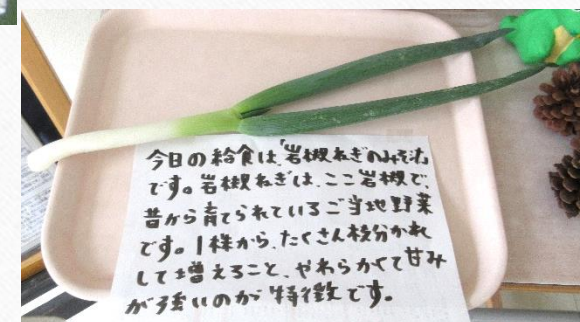 今日の給食は、「岩槻ねぎ」のみそ汁
です。岩槻ねぎは、ここ岩槻で、
昔から育てられているご当地野菜
です。1株から、たくさん枝分かれ
して増えること、やわらかくて甘み
が強いのが特徴です。